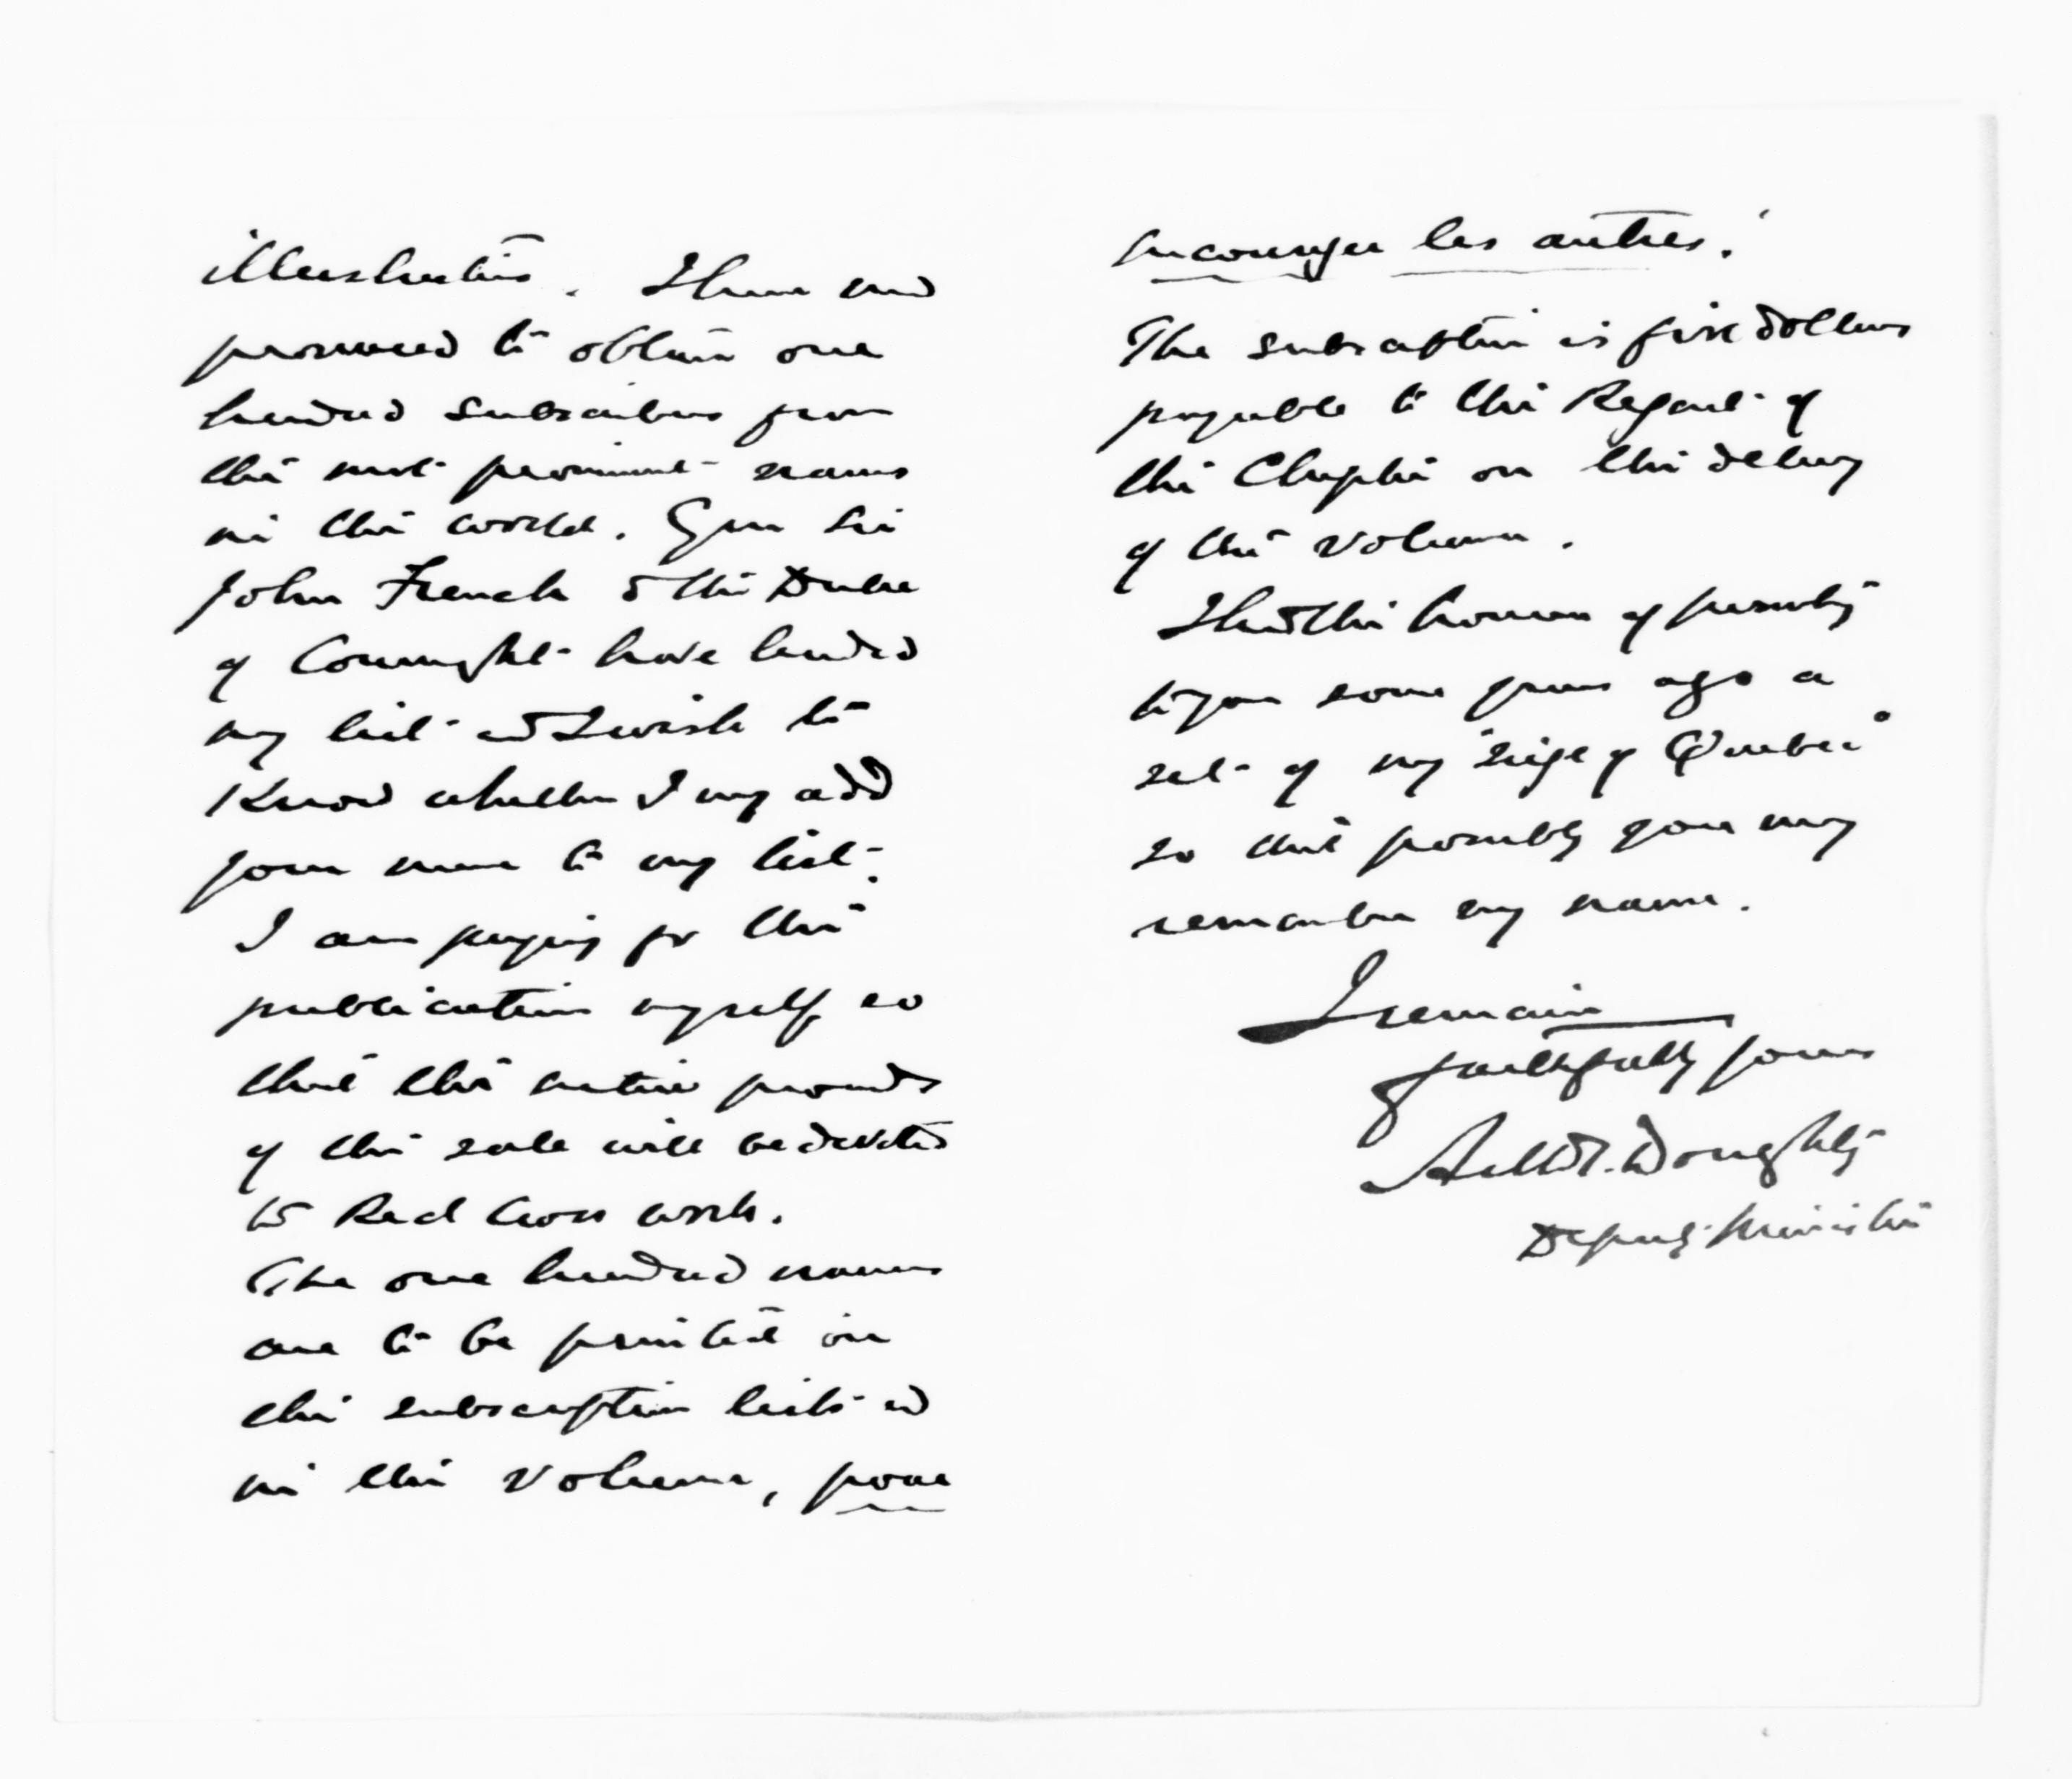 illustration. I have now
promised to obtain one
hundred subscribers from
the most prominent names
in the world. Gen Sir
John French & the Duke
of Connaught have headed
my list and I wish to
know whether I may add
your name to my list.
I am paying for this
publication myself so
that the entire proceeds
of the sale will be devoted
to Red Cross work.
The one hundred names
are to be printed in
the subscription lists and
in the volume, pour
encourager les autres.'
The subscription is five dollars
payable to the Regent of
the Chapter on the delivery
of the volume.
I had the honour of presenting
to you some years ago a
set of my "Siege of Quebec"
so that possibly you may
remember my name.
I remain
faithfully yours
Doughty
Deputy Minister